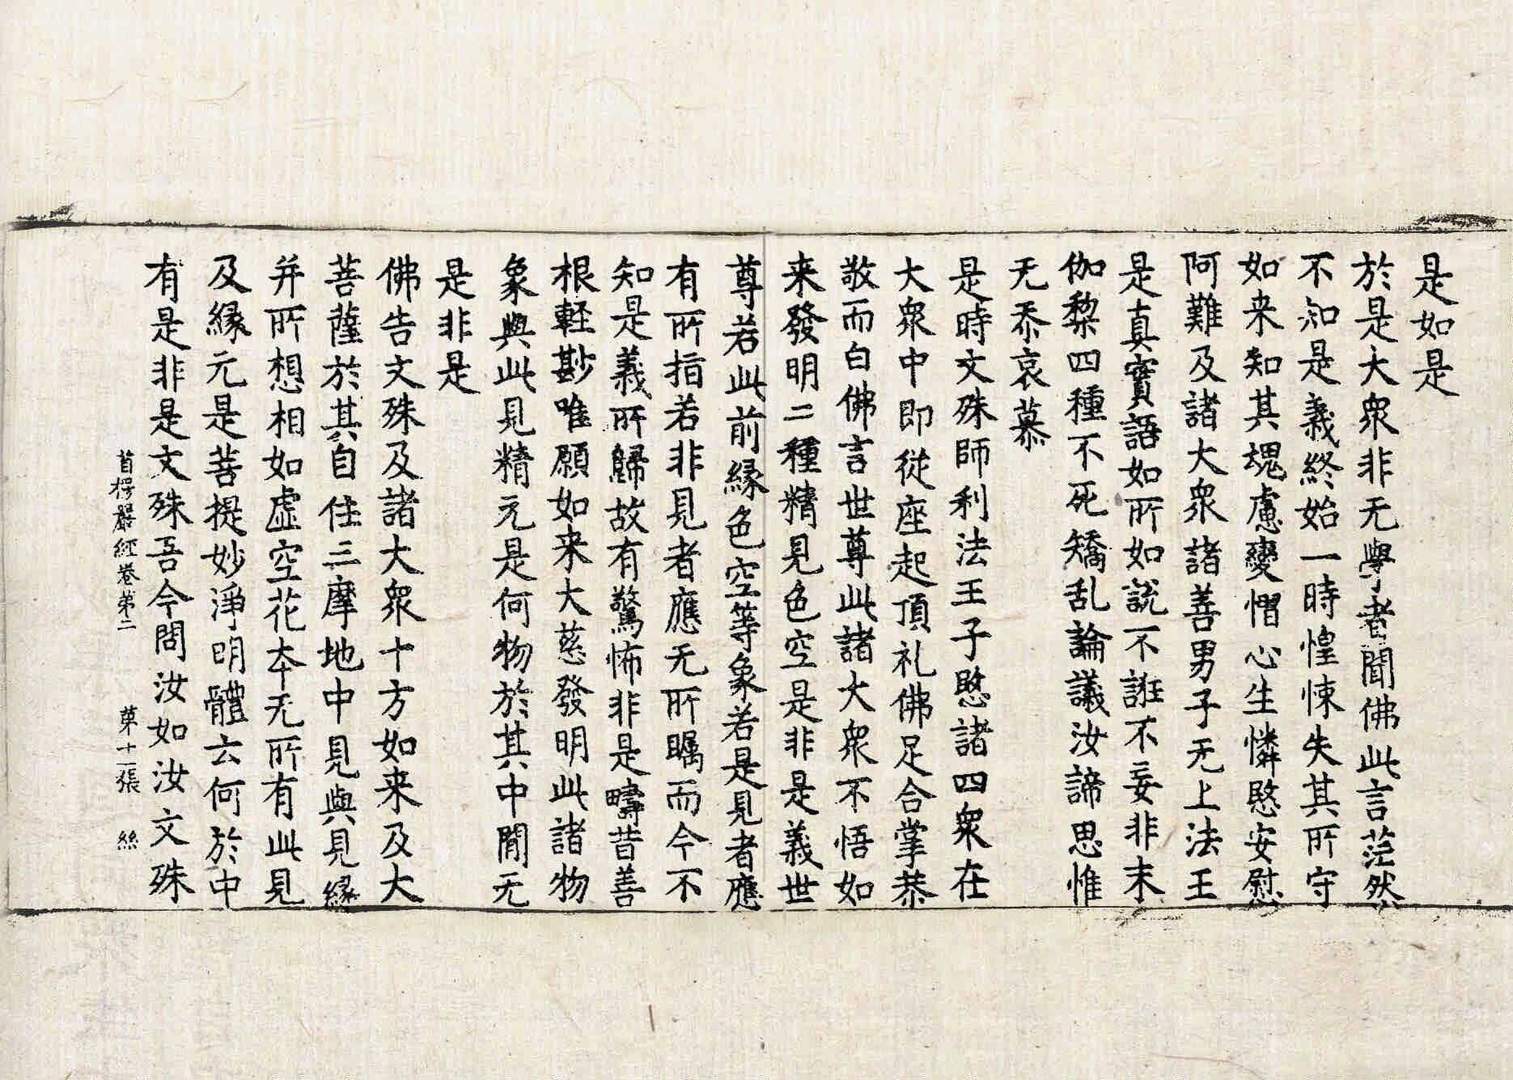 是如是
於是大衆非无學者聞佛此言茫然
不知是義終始一時惶悚失其所守
如来知其塊慮變慴心生憐愍安慰
阿難及諸大衆諸善男子无上法王
是真實語如所如說不誑不妄非末
伽梨四種不死矯乱論議汝諦思惟
无忝哀慕
是時文殊師利法王子愍諸四衆在
大衆中即從座起頂礼佛足合掌恭
敬而白佛言世尊此諸大衆不悟如
来發明二種精見色空是非是義世
尊若此前緣色空等象若是見者應
有所指若非見者應无所矚而今不
知是義所歸故有驚怖非是疇昔善
根軽尠唯願如来大慈發明此諸物
象與此見精元是何物於其中間无
是非是
佛告文殊及諸大衆十方如来及大
菩薩於其自住三摩地中見與見緣
并所想相如虛空花夲无所有此見
及緣元是菩提妙淨明體云何於中
有是非是文殊吾今問汝如汝文殊
首楞嚴經卷第二 第十一張 絲